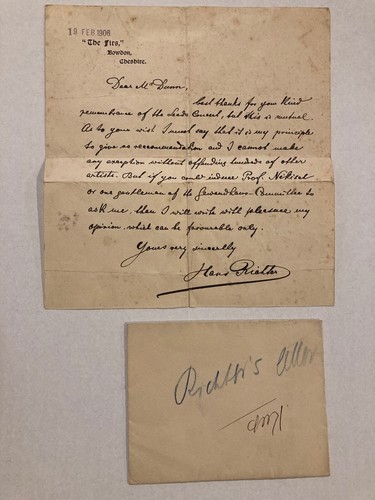 19 FEB 1906
"The Firs,"
Bowdon,
Cheshire.
Dear Mr Dunn,
best thanks for your kind
remembrance of the Leeds Concert, but this is mutual
As to your wish I must say that it is my principle
to give no recommendation and I cannot make
any exception without offending hundreds of other
artists. But if you could induce Prof. Nikisch
or one gentleman of the Gewandhaus Committee to
ask me then I will write with pleasure my
opinion, which can be favourable only.
Yours very sincerely
Hans Richter
Richter's letter